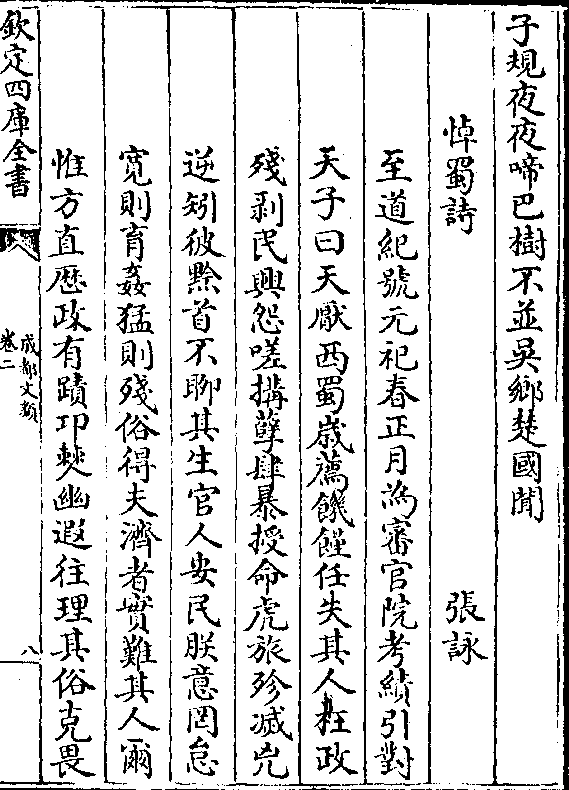 子規夜夜啼巴樹不並吳鄉楚國聞
悼蜀詩 張詠
至道紀號元祀春正月為審官院考績引對
天子曰天厭西蜀歲薦饑饉任失其人枉政
殘剥民興怨嗟搆孽肆暴授命虎旅殄滅兇
逆矧彼黔首不聊其生官人安民朕意罔怠
寛則育姦猛則殘俗得夫濟者實難其人爾
惟方直歴政有蹟卭僰幽遐往理其俗克畏
欽定四庫全書
成都文類
卷二
八